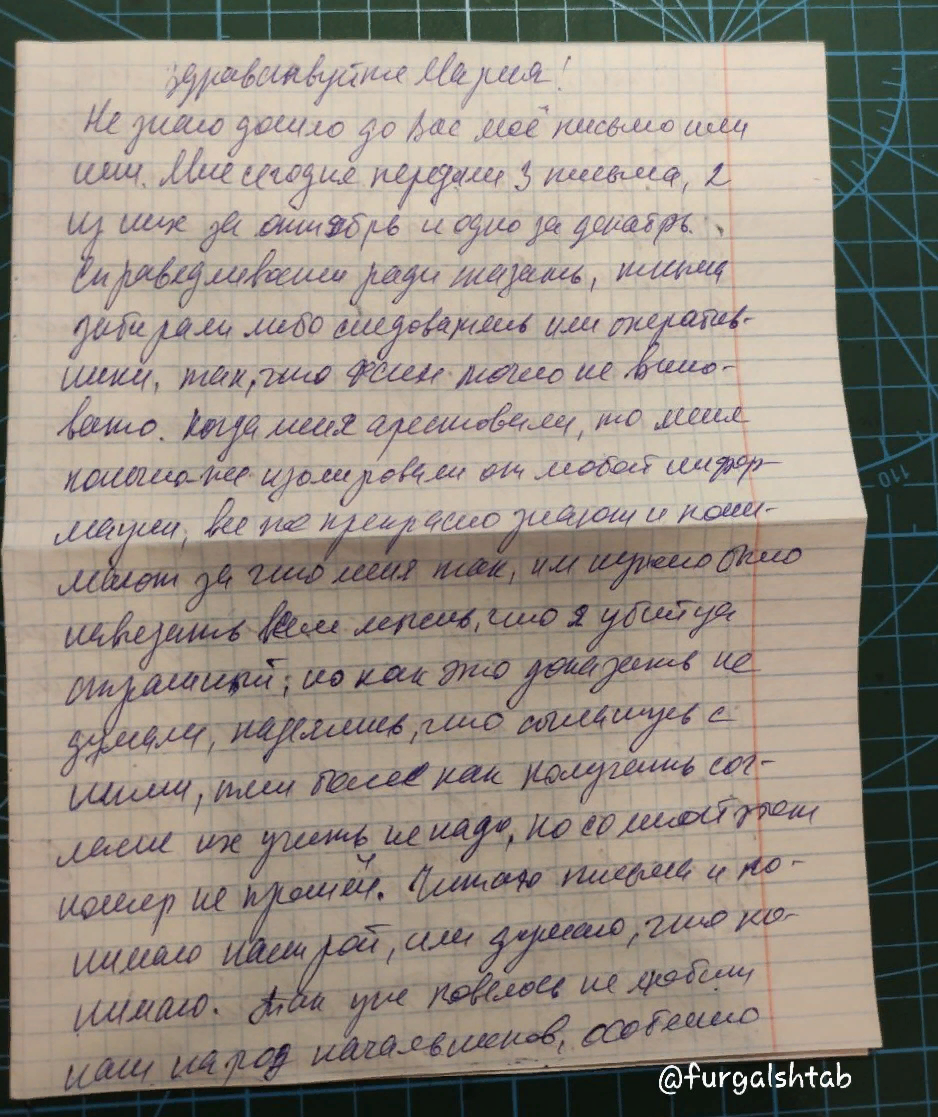 Здравствуйте Мария!
Не знаю дошло до Вас моё письмо или
нет. Мне сегодня передали 3 письма, 2
из них за октябрь и одно за декабрь.
Справедливости ради сказать, письма
забирали либо следователь или оператив-
ники, так, что ФСИН точно не вино-
вато. Когда меня арестовали, то меня
полностью изолировали от любой инфор-
мации, все же прекрасно знают и пони-
мают за что меня так, им нужно было
навезать всем мысль, что я убийца
страшный, но как это доказать не
думали, надеялись, что соглашусь с
ними, тем более как получать сог-
ласие их учить не надо, но со мной этот
номер не прошёл. Читаю письма и по-
нимаю настрой, или думаю, что по-
нимаю. Так уже повелось не любит
наш народ начальников, особенно
@furgalshtab